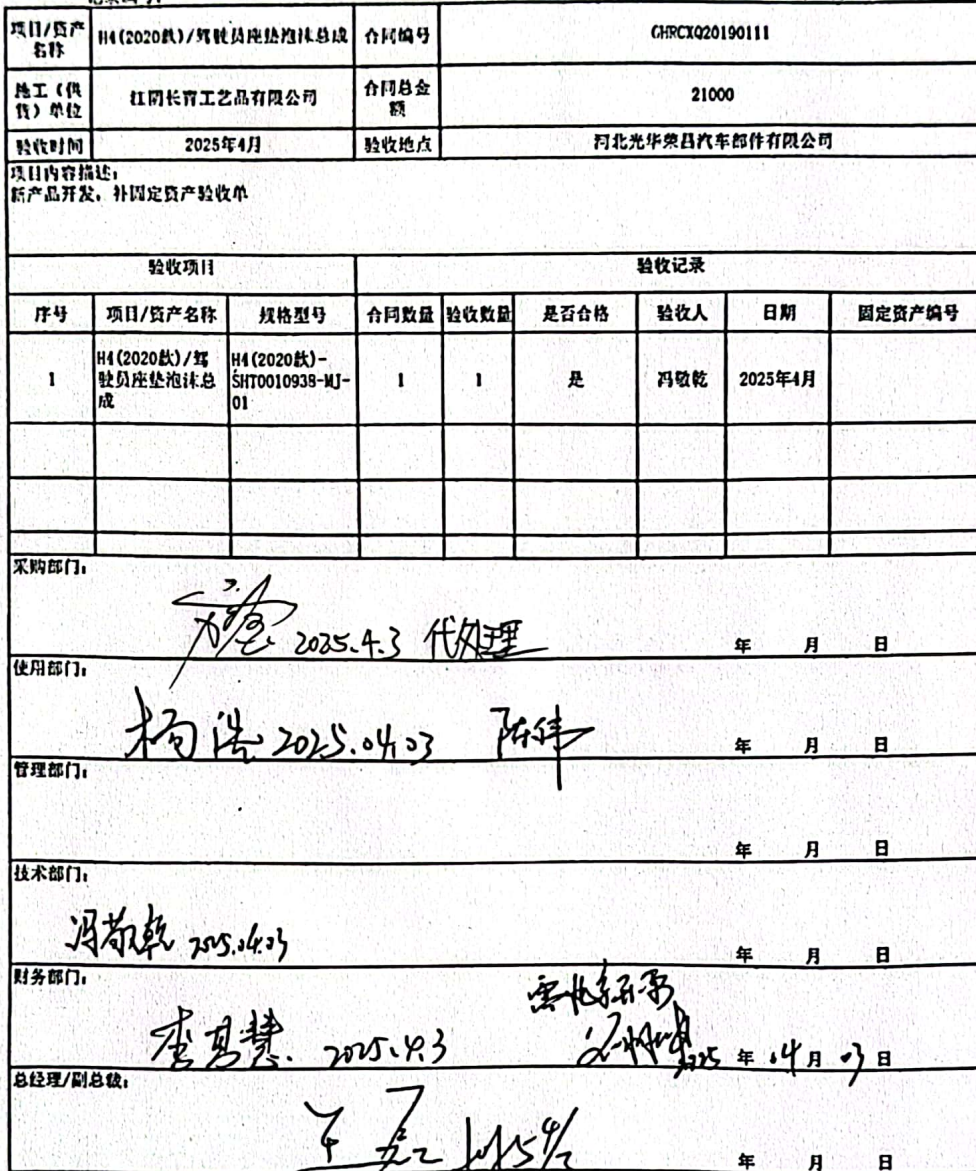 项目/资产名称 H4(2020款)/驾驶员座垫泡沫总成 合同编号 GHRCXQ20190111
施工(供货)单位 江阴长育工艺品有限公司 合同总金额 21000
验收时间 2025年4月 验收地点 河北光华荣昌汽车部件有限公司
项目内容描述:
新产品开发,补固定资产验收单
验收项目 验收记录
序号 项目/资产名称 规格型号 合同数量 验收数量 是否合格 验收人 日期 固定资产编号
1 H4(2020款)/驾驶员座垫泡沫总成 H4(2020款)-SHT0010938-MJ-01 1 1 是 冯敬乾 2025年4月
采购部门:
2025.4.3 代处理 年 月 日
使用部门:
杨浩 2025.04.03 陈伟 年 月 日
管理部门:
年 月 日
技术部门:
冯敬乾 2025.04.03 年 月 日
财务部门:
2025.4.3 2025 年 04 月 03 日
总经理/副总裁:
年 月 日